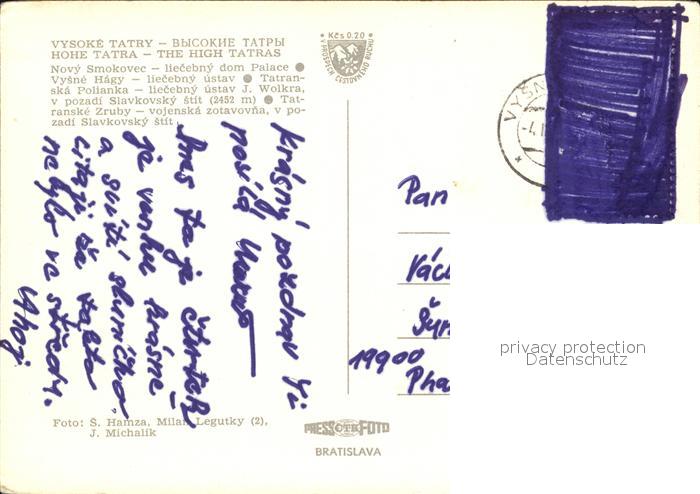 VYSOKÉ TATRY — ВЫСОКИЕ ТАТРЫ
HOHE TATRA — THE HIGH TATRAS
Nový Smokovec — liečebný dom Palace ●
Vyšné Hágy — liečebný ústav ● Tatran-
ská Polianka — liečebný ústav J. Wolkra,
v pozadí Slavkovský štít (2452 m) ● Tat-
ranské Zruby — vojenská zotavovňa, v po-
zadí Slavkovský štít
Kčs 0.20
V PROSPECH CESTOVNÉHO RUCHU
VYŠN
krásný pozdrav Ti
posílá
Dnes ta je čtvrtek
je venku krásně
a svítí sluníčko
nebylo ve středu.
Ahoj
Pan
Vác
Šyn
19900
Pha
privacy protection
Datenschutz
Foto: Š. Hamza, Milan Legutky (2),
J. Michalík
PRESSFOTO
ČTK
BRATISLAVA